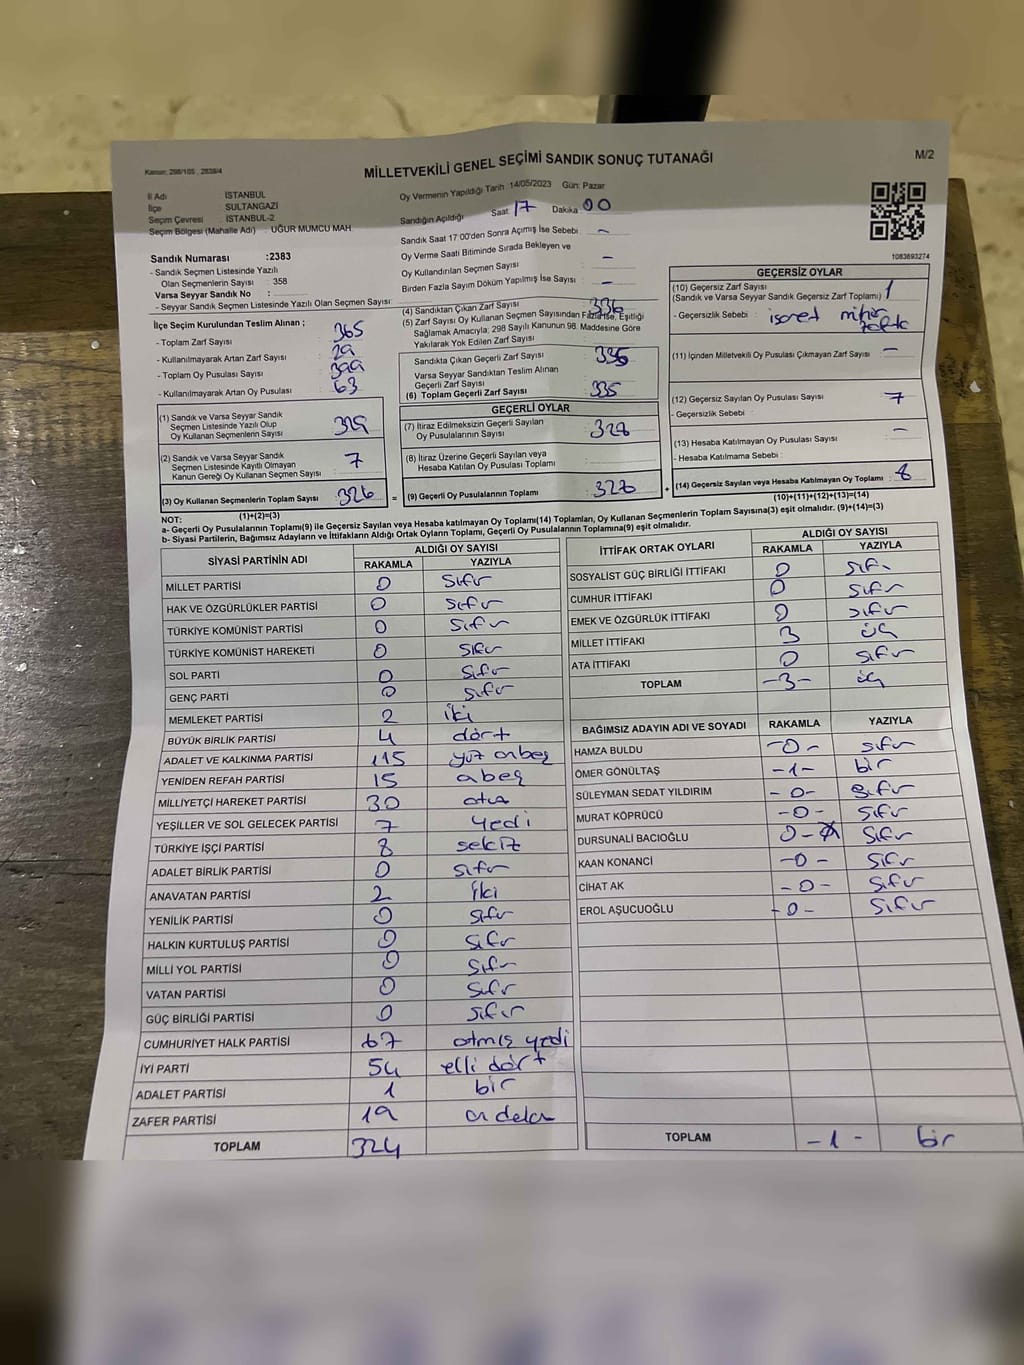 Kanun: 298/105 , 2839/4
MİLLETVEKİLİ GENEL SEÇİMİ SANDIK SONUÇ TUTANAĞI
M/2
İl Adı : İSTANBUL
İlçe : SULTANGAZİ
Seçim Çevresi : İSTANBUL-2
Seçim Bölgesi (Mahalle Adı) : UĞUR MUMCU MAH.
Oy Vermenin Yapıldığı Tarih :14/05/2023 Gün: Pazar
Sandığın Açıldığı Saat: 17 Dakika: 00
Sandık Saat 17:00'den Sonra Açımış İse Sebebi : -
Oy Verme Saati Bitiminde Sırada Bekleyen ve
Oy Kullandırılan Seçmen Sayısı : -
Birden Fazla Sayım Döküm Yapılmış İse Sayısı : -
1083693274
Sandık Numarası :2383
- Sandık Seçmen Listesinde Yazılı
Olan Seçmenlerin Sayısı : 358
Varsa Seyyar Sandık No :
- Seyyar Sandık Seçmen Listesinde Yazılı Olan Seçmen Sayısı:
İlçe Seçim Kurulundan Teslim Alınan ;
- Toplam Zarf Sayısı : 365
- Kullanılmayarak Artan Zarf Sayısı : 29
- Toplam Oy Pusulası Sayısı : 399
- Kullanılmayarak Artan Oy Pusulası : 63
(1) Sandık ve Varsa Seyyar Sandık
Seçmen Listesinde Yazılı Olup
Oy Kullanan Seçmenlerin Sayısı : 329
(2) Sandık ve Varsa Seyyar Sandık
Seçmen Listesinde Kayıtlı Olmayan
Kanun Gereği Oy Kullanan Seçmen Sayısı : 7
(3) Oy Kullanan Seçmenlerin Toplam Sayısı :
(1)+(2)=(3)
(4) Sandıktan Çıkan Zarf Sayısı : 336
(5) Zarf Sayısı Oy Kullanan Seçmen Sayısından Fazla İse, Eşitliği
Sağlamak Amacıyla; 298 Sayılı Kanunun 98. Maddesine Göre
Yakılarak Yok Edilen Zarf Sayısı :
Sandıkta Çıkan Geçerli Zarf Sayısı : 335
Varsa Seyyar Sandıktan Teslim Alınan
Geçerli Zarf Sayısı :
(6) Toplam Geçerli Zarf Sayısı : 335
GEÇERLİ OYLAR
(7) İtiraz Edilmeksizin Geçerli Sayılan
Oy Pusulalarının Sayısı : 328
(8) İtiraz Üzerine Geçerli Sayılan veya
Hesaba Katılan Oy Pusulası Toplamı :
= (9) Geçerli Oy Pusulalarının Toplamı : 328
GEÇERSİZ OYLAR
(10) Geçersiz Zarf Sayısı : 1
(Sandık ve Varsa Seyyar Sandık Geçersiz Zarf Toplamı)
- Geçersizlik Sebebi :
(11) İçinden Milletvekili Oy Pusulası Çıkmayan Zarf Sayısı : -
(12) Geçersiz Sayılan Oy Pusulası Sayısı : 7
- Geçersizlik Sebebi :
(13) Hesaba Katılmayan Oy Pusulası Sayısı : -
- Hesaba Katılmama Sebebi :
+ (14) Geçersiz Sayılan veya Hesaba Katılmayan Oy Toplamı : 8
(10)+(11)+(12)+(13)=(14)
NOT:
a- Geçerli Oy Pusulalarının Toplamı(9) ile Geçersiz Sayılan veya Hesaba katılmayan Oy Toplamı(14) Toplamları, Oy Kullanan Seçmenlerin Toplam Sayısına(3) eşit olmalıdır. (9)+(14)=(3)
b- Siyasi Partilerin, Bağımsız Adayların ve İttifakların Aldığı Ortak Oyların Toplamı, Geçerli Oy Pusulalarının Toplamına(9) eşit olmalıdır.
SİYASİ PARTİNİN ADI ALDIĞI OY SAYISI
RAKAMLA YAZIYLA
MİLLET PARTİSİ 0 sıfır
HAK VE ÖZGÜRLÜKLER PARTİSİ 0 sıfır
TÜRKİYE KOMÜNİST PARTİSİ 0 sıfır
TÜRKİYE KOMÜNİST HAREKETİ 0 sıfır
SOL PARTİ 0 sıfır
GENÇ PARTİ 0 sıfır
MEMLEKET PARTİSİ 2 iki
BÜYÜK BİRLİK PARTİSİ 4 dört
ADALET VE KALKINMA PARTİSİ 115 yüz onbeş
YENİDEN REFAH PARTİSİ 15 onbeş
MİLLİYETÇİ HAREKET PARTİSİ 30 otuz
YEŞİLLER VE SOL GELECEK PARTİSİ 7 yedi
TÜRKİYE İŞÇİ PARTİSİ 8 sekiz
ADALET BİRLİK PARTİSİ 0 sıfır
ANAVATAN PARTİSİ 2 iki
YENİLİK PARTİSİ 0 sıfır
HALKIN KURTULUŞ PARTİSİ 0 sıfır
MİLLİ YOL PARTİSİ 0 sıfır
VATAN PARTİSİ 0 sıfır
GÜÇ BİRLİĞİ PARTİSİ 0 sıfır
CUMHURİYET HALK PARTİSİ 67 atmış yedi
İYİ PARTİ 54 elli dört
ADALET PARTİSİ 1 bir
ZAFER PARTİSİ 19 on dokuz
TOPLAM 324
İTTİFAK ORTAK OYLARI ALDIĞI OY SAYISI
RAKAMLA YAZIYLA
SOSYALİST GÜÇ BİRLİĞİ İTTİFAKI 0 sıfır
CUMHUR İTTİFAKI 0 sıfır
EMEK VE ÖZGÜRLÜK İTTİFAKI 0 sıfır
MİLLET İTTİFAKI 3 üç
ATA İTTİFAKI 0 sıfır
TOPLAM -3- üç
BAĞIMSIZ ADAYIN ADI VE SOYADI RAKAMLA YAZIYLA
HAMZA BULDU -0- sıfır
ÖMER GÖNÜLTAŞ -1- bir
SÜLEYMAN SEDAT YILDIRIM -0- sıfır
MURAT KÖPRÜCÜ -0- sıfır
DURSUNALİ BACIOĞLU 0- sıfır
KAAN KONANCİ -0- sıfır
CİHAT AK -0- sıfır
EROL AŞUCUOĞLU -0- sıfır
TOPLAM -1- bir